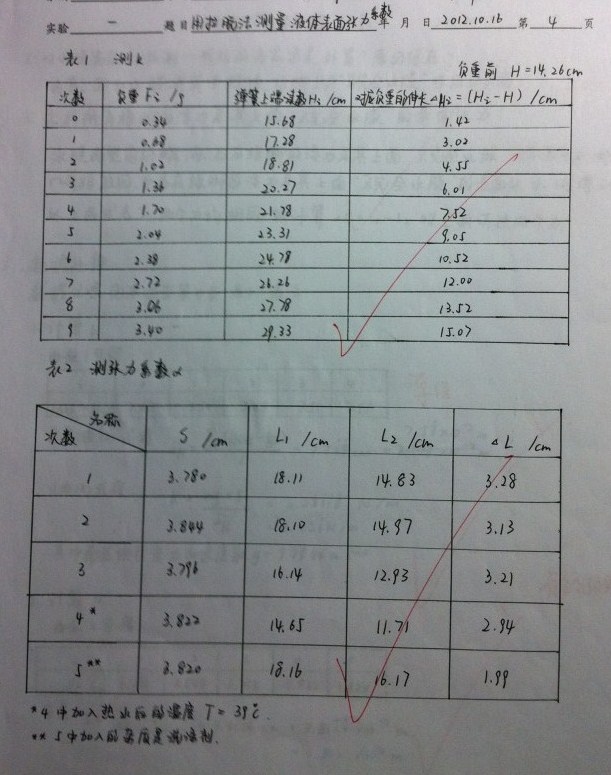 实验 一 题目 用拉脱法测量液体表面张力系数 年 月 日 2012.10.16 第 4 页
表1 测k
负重前 H=14.26cm
次数 负重 Fi /g 弹簧上端读数Hi /cm 对应负重的伸长△Hi = (Hi-H) /cm
0 0.34 15.68 1.42
1 0.68 17.28 3.02
2 1.02 18.81 4.55
3 1.36 20.27 6.01
4 1.70 21.78 7.52
5 2.04 23.31 9.05
6 2.38 24.78 10.52
7 2.72 26.26 12.00
8 3.06 27.78 13.52
9 3.40 29.33 15.07
表2 测张力系数α
名称
次数 S /cm L1 /cm L2 /cm △L /cm
1 3.780 18.11 14.83 3.28
2 3.844 18.10 14.97 3.13
3 3.796 16.14 12.93 3.21
4* 3.822 14.65 11.71 2.94
5** 3.820 18.16 16.17 1.99
*4中加入热水后的温度 T=39℃.
**5中加入的杂质是洗涤剂.